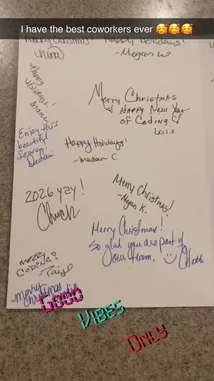 I have the best coworkers ever 🥰🥰🥰
Merry Christmas!
Happy Holidays!
- Megan W
Happy
Holidays!
Merry Christmas
& Happy New Year
of Coding
Lois
Enjoy this
beautiful
Season.
Happy Holidays!
- Madison C
2026 yay!
Chuck
Merry Christmas!
- Megan K.
Merry Christmas!
So glad you are part of
your team.
Merry
Coding!
Merry
Christmas
GOOD
VIBES
ONLY